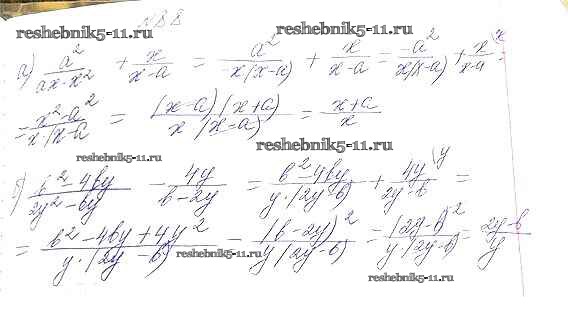 №88
reshebnik5-11.ru reshebnik5-11.ru
а) a²/(ax-x²) + x/(x-a) = a²/(-x(x-a)) + x/(x-a) = -a²/(x(x-a)) + x/(x-a) (x =
= (x²-a²)/(x(x-a) = ((x-a)(x+a))/(x(x-a)) = (x+a)/x
reshebnik5-11.ru reshebnik5-11.ru
б) (b²-4by)/(2y²-by) - 4y/(b-2y) = (b²-4by)/(y(2y-b)) + 4y/(2y-b) (y =
= (b²-4by+4y²)/(y·(2y-b)) = (b-2y)²/(y(2y-b)) = (2y-b)²/(y(2y-b)) = (2y-b)/y
reshebnik5-11.ru
reshebnik5-11.ru